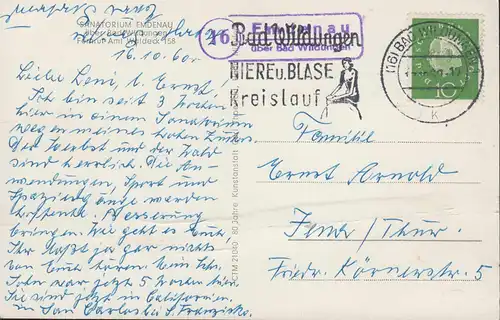 SANATORIUM EMDENAU
über Bad Wildungen
Fernruf: Amt Waldeck 158
16.10.60.
Liebe Leni, b. Ernst!
Ich bin seit 3 Wochen
hier in einem Sanatorium
wegen meines hohen Zuckers.
Der Herbst und der Wald
sind herrlich. Die An-
wendungen, Sport und
Spaziergänge werden
Besserung
bringen. Wie geht es Euch?
Ihr laßt ja gar nichts
von Euch hören. Mein
John war jetzt 5 Wochen hier.
Sie sind jetzt in Californien.
in San Carlos b. S. Franzisko.
80 Jahre Kunstanstalt
(16) Emdenau
über Bad Wildungen
Bad Wildungen
NIERE u. BLASE
Kreislauf
(16) BAD WILDUNGEN
k
10
Familie
Ernst Arnold
Jena/Thür.
Friedr. Körnerstr. 5